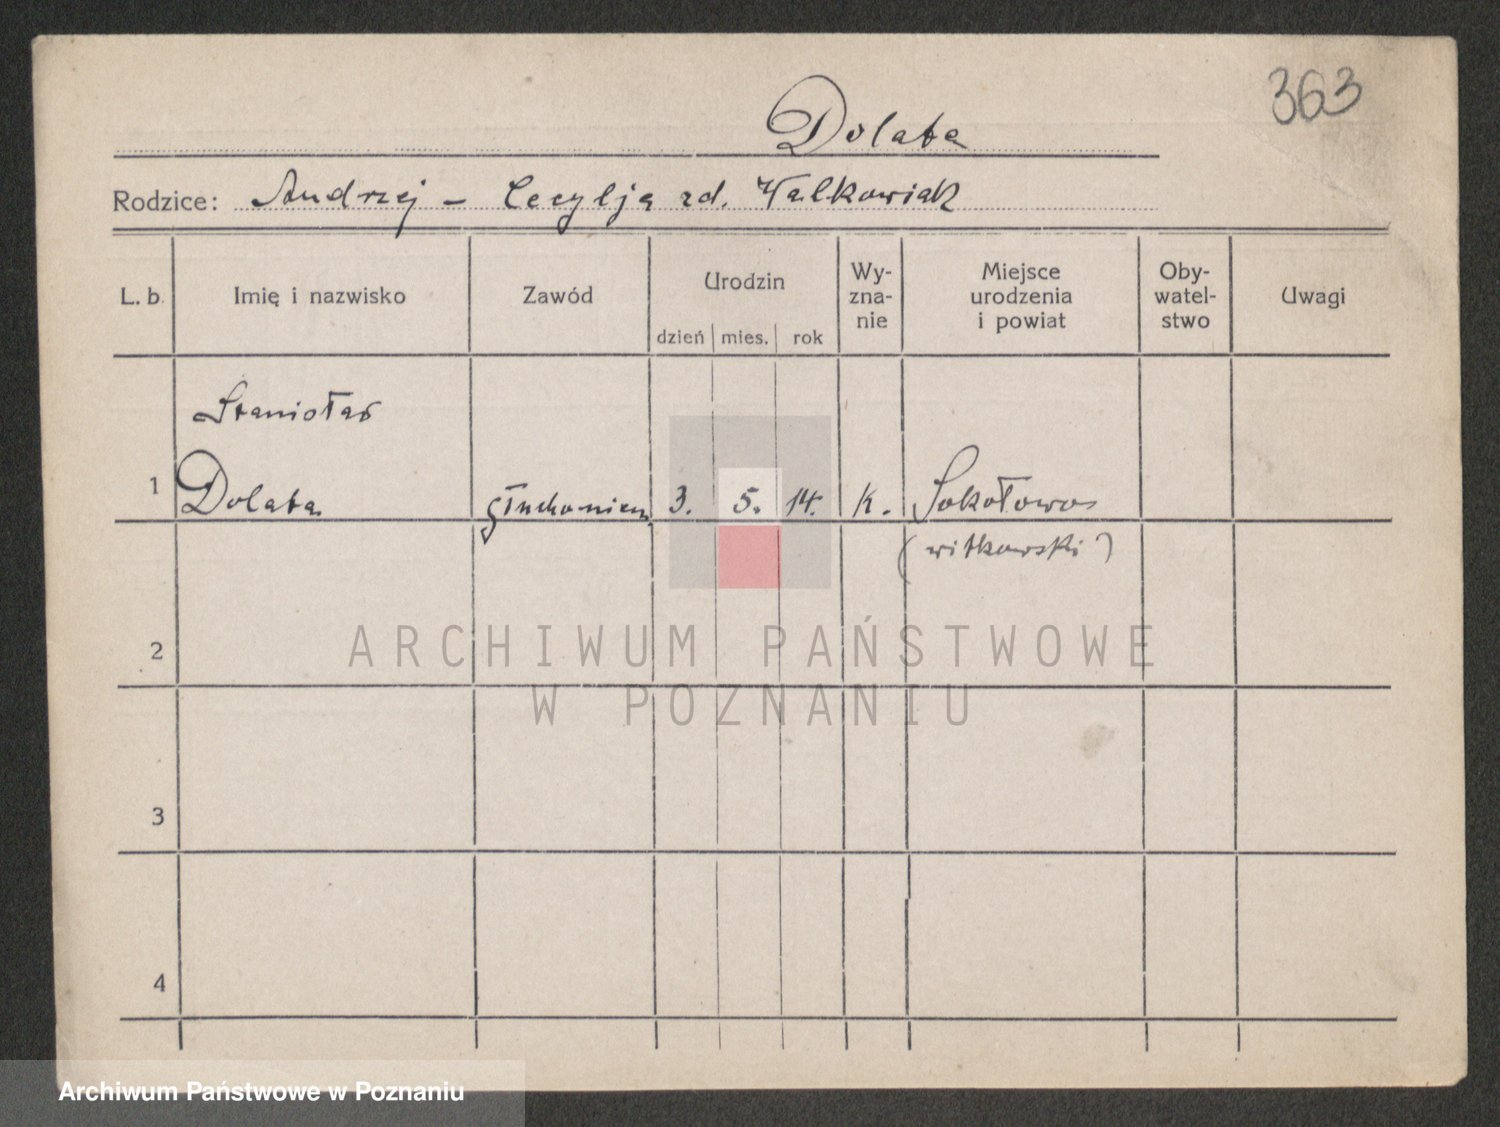 363
Dolata
Rodzice: Andrzej – Cecylja zd. Walkowiak
L. b. Imię i nazwisko Zawód Urodzin dzień mies. rok Wy-zna-nie Miejsce urodzenia i powiat Oby-watel-stwo Uwagi
Stanisław
1 Dolata głuchoniem. 3. 5. 14. k. Sokołowo
(witkowski)
2
ARCHIWUM PAŃSTWOWE
W POZNANIU
3
4
Archiwum Państwowe w Poznaniu